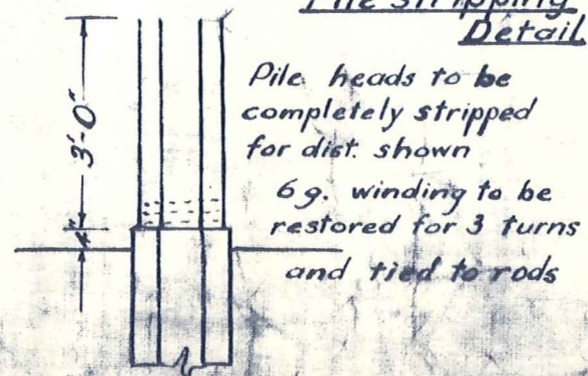 Pile Stripping
Detail
3'-0"
4"
Pile heads to be
completely stripped
for dist. shown
6g. winding to be
restored for 3 turns
and tied to rods